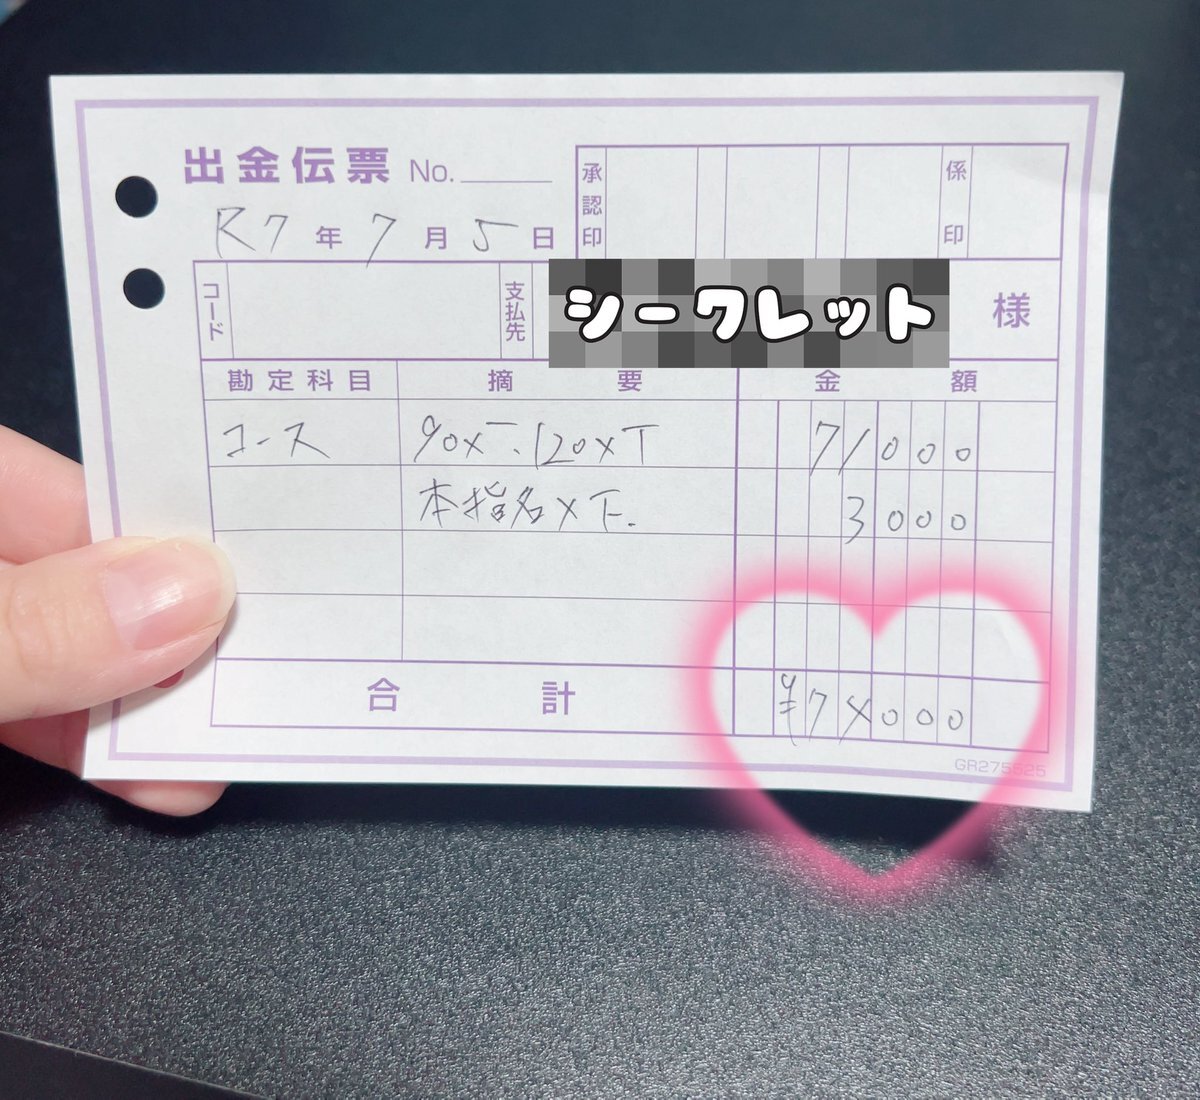 出金伝票 No.
R7年7月5日
承認印
係印
コード
支払先
シークレット 様
勘定科目 摘要 金額
コース 90x 120x 71000
本指名x 3000
合計 ¥74000
GR275525